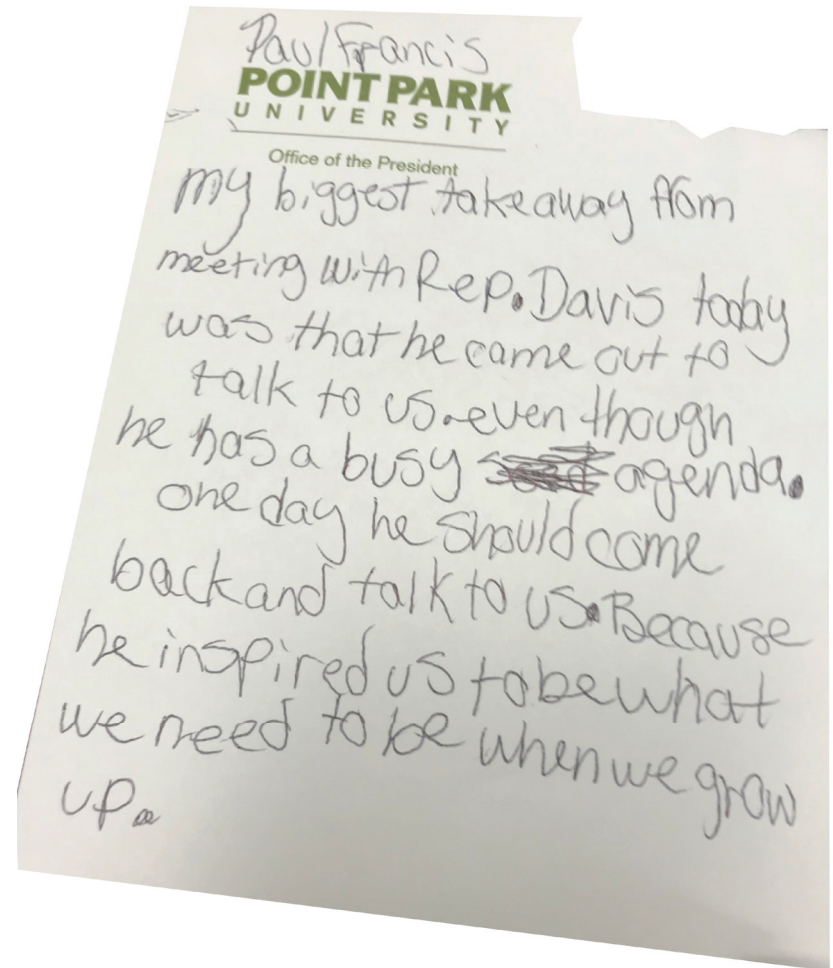 Paul Francis
POINT PARK
UNIVERSITY
Office of the President
my biggest takeaway from
meeting with Rep. Davis today
was that he came out to
talk to us. even though
he has a busy agenda.
one day he should come
back and talk to us. Because
he inspired us to be what
we need to be when we grow
up.